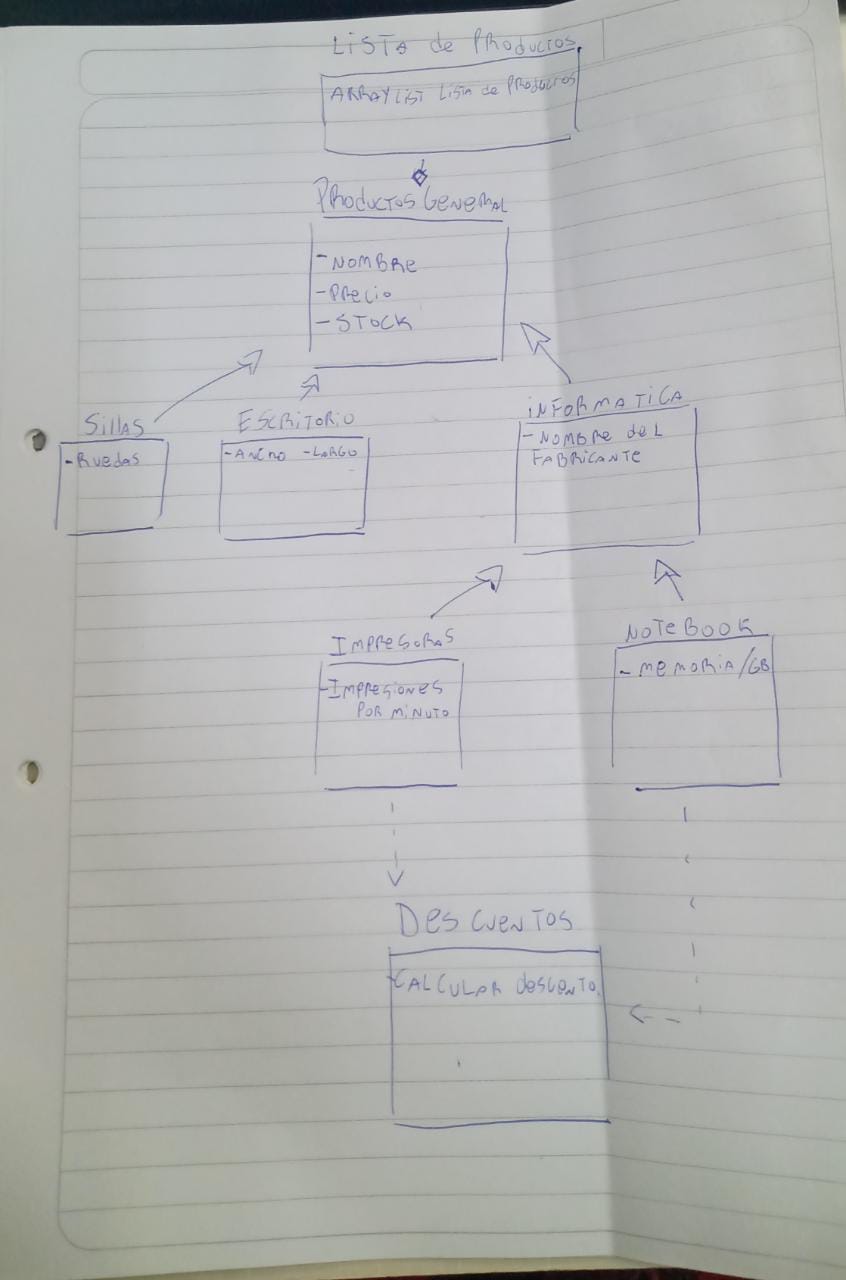 LISTA de PRODUCTOS
ARRAY LIST LISTA de PRODUCTOS
PRODUCTOS GENERAL
- NOMBRE
- PRECIO
- STOCK
SILLAS
- Ruedas
ESCRITORIO
- ANCHO - LARGO
INFORMATICA
- NOMBRE deL
FABRICANTE
IMPRESORAS
- IMPRESIONES
POR MINUTO
NOTEBOOK
- MEMORIA/GB
DESCUENTOS
- CALCULAR desCUENTO